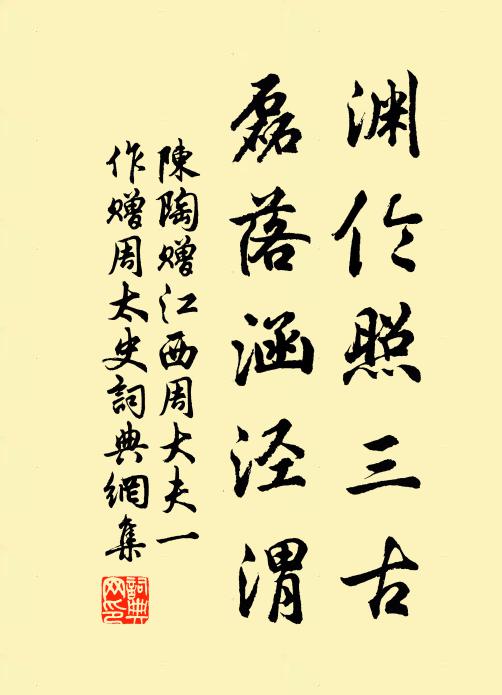 渊伦照三古
磊落涵泾渭
陳陶贈江西周大夫一
作贈周太史詞典網集